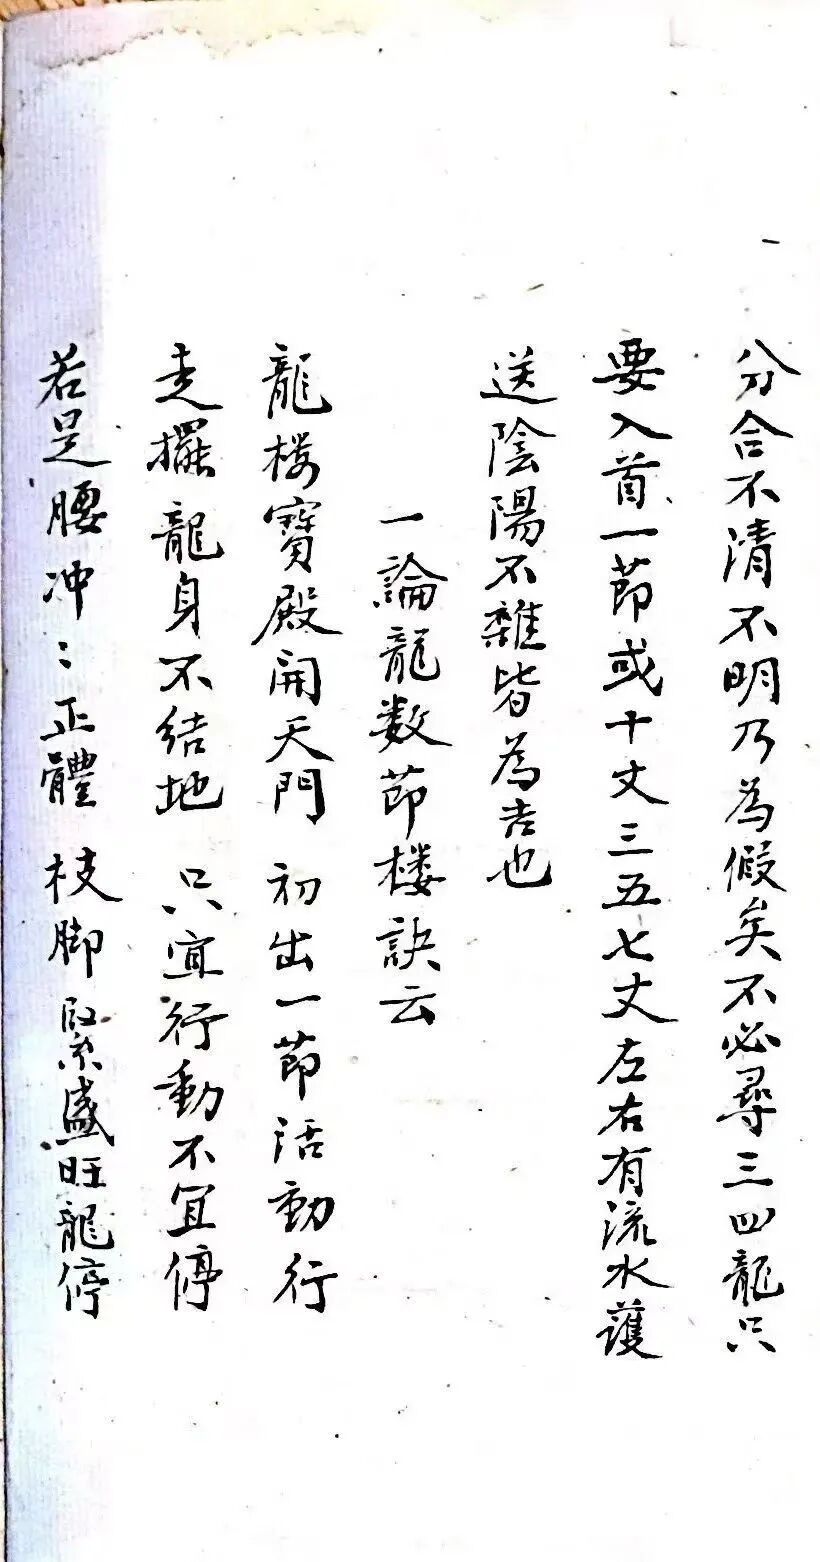 分合不清不明乃為假矣不必尋三四龍只
要入首一節或十丈三五七丈左右有流水護
送陰陽不雜皆為吉也
一論龍数節楼訣云
龍楼寳殿開天門 初出一節活動行
走擺龍身不结地 只宜行動不宜停
若是腰冲：正體 枝脚緊盛旺龍停